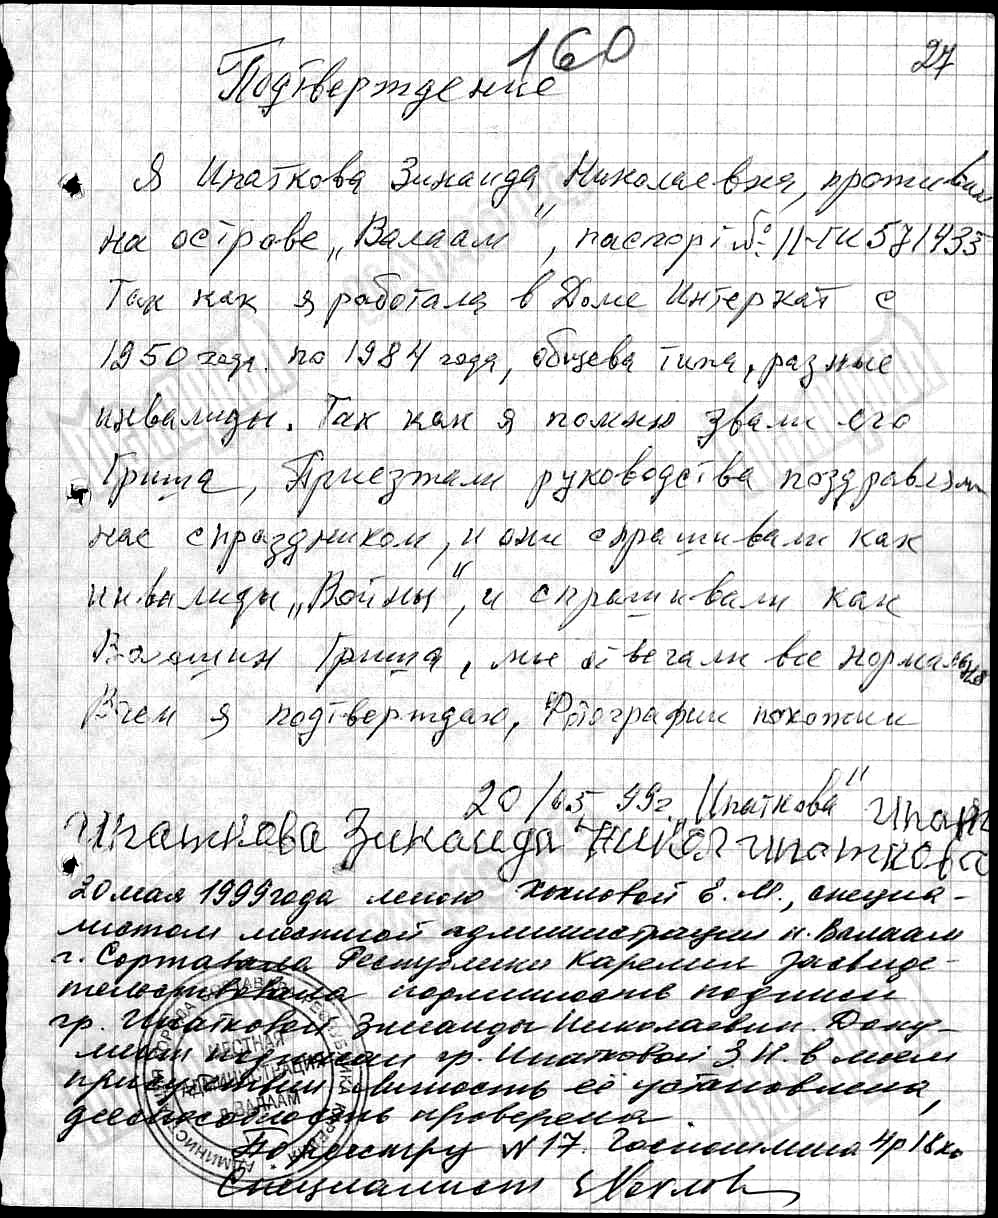 160
27
Подтверждение
Я Ипаткова Зинаида Николаевна, проживаю
на острове „Валаам", паспорт № II-ГИ 571433
Так как я работала в Доме Интернат с
1950 года. по 1984 года, общева типа, разные
инвалиды. Так как я помню звали его
Гриша, Приезжали руководства поздравляли
нас спраздником, и они спрашивали как
инвалиды „Войны", и спрашивали как
Волошин Гриша, мы отвечали все нормально
Вчем я подтверждаю, Фотографии похожии
20/05 99г. „Ипаткова"
Ипаткова Зинаида Никол Ипаткова
20 мая 1999 года мною Хохловой Е. М., специа-
листом местной администрации п. Валаам
г. Сортавала Республики Карелии засвиде-
тельствована подлинность подписи
гр. Ипатковой Зинаиды Николаевны. Доку-
мент подписан гр. Ипатковой З Н. в моем
присутствии. Личность её установлена,
дееспособность проверена
По реестру N 17. Госпошлина 4р 18 ко
Специалист
МЕСТНАЯ
АДМИНИСТРАЦИЯ
П. ВАЛААМ